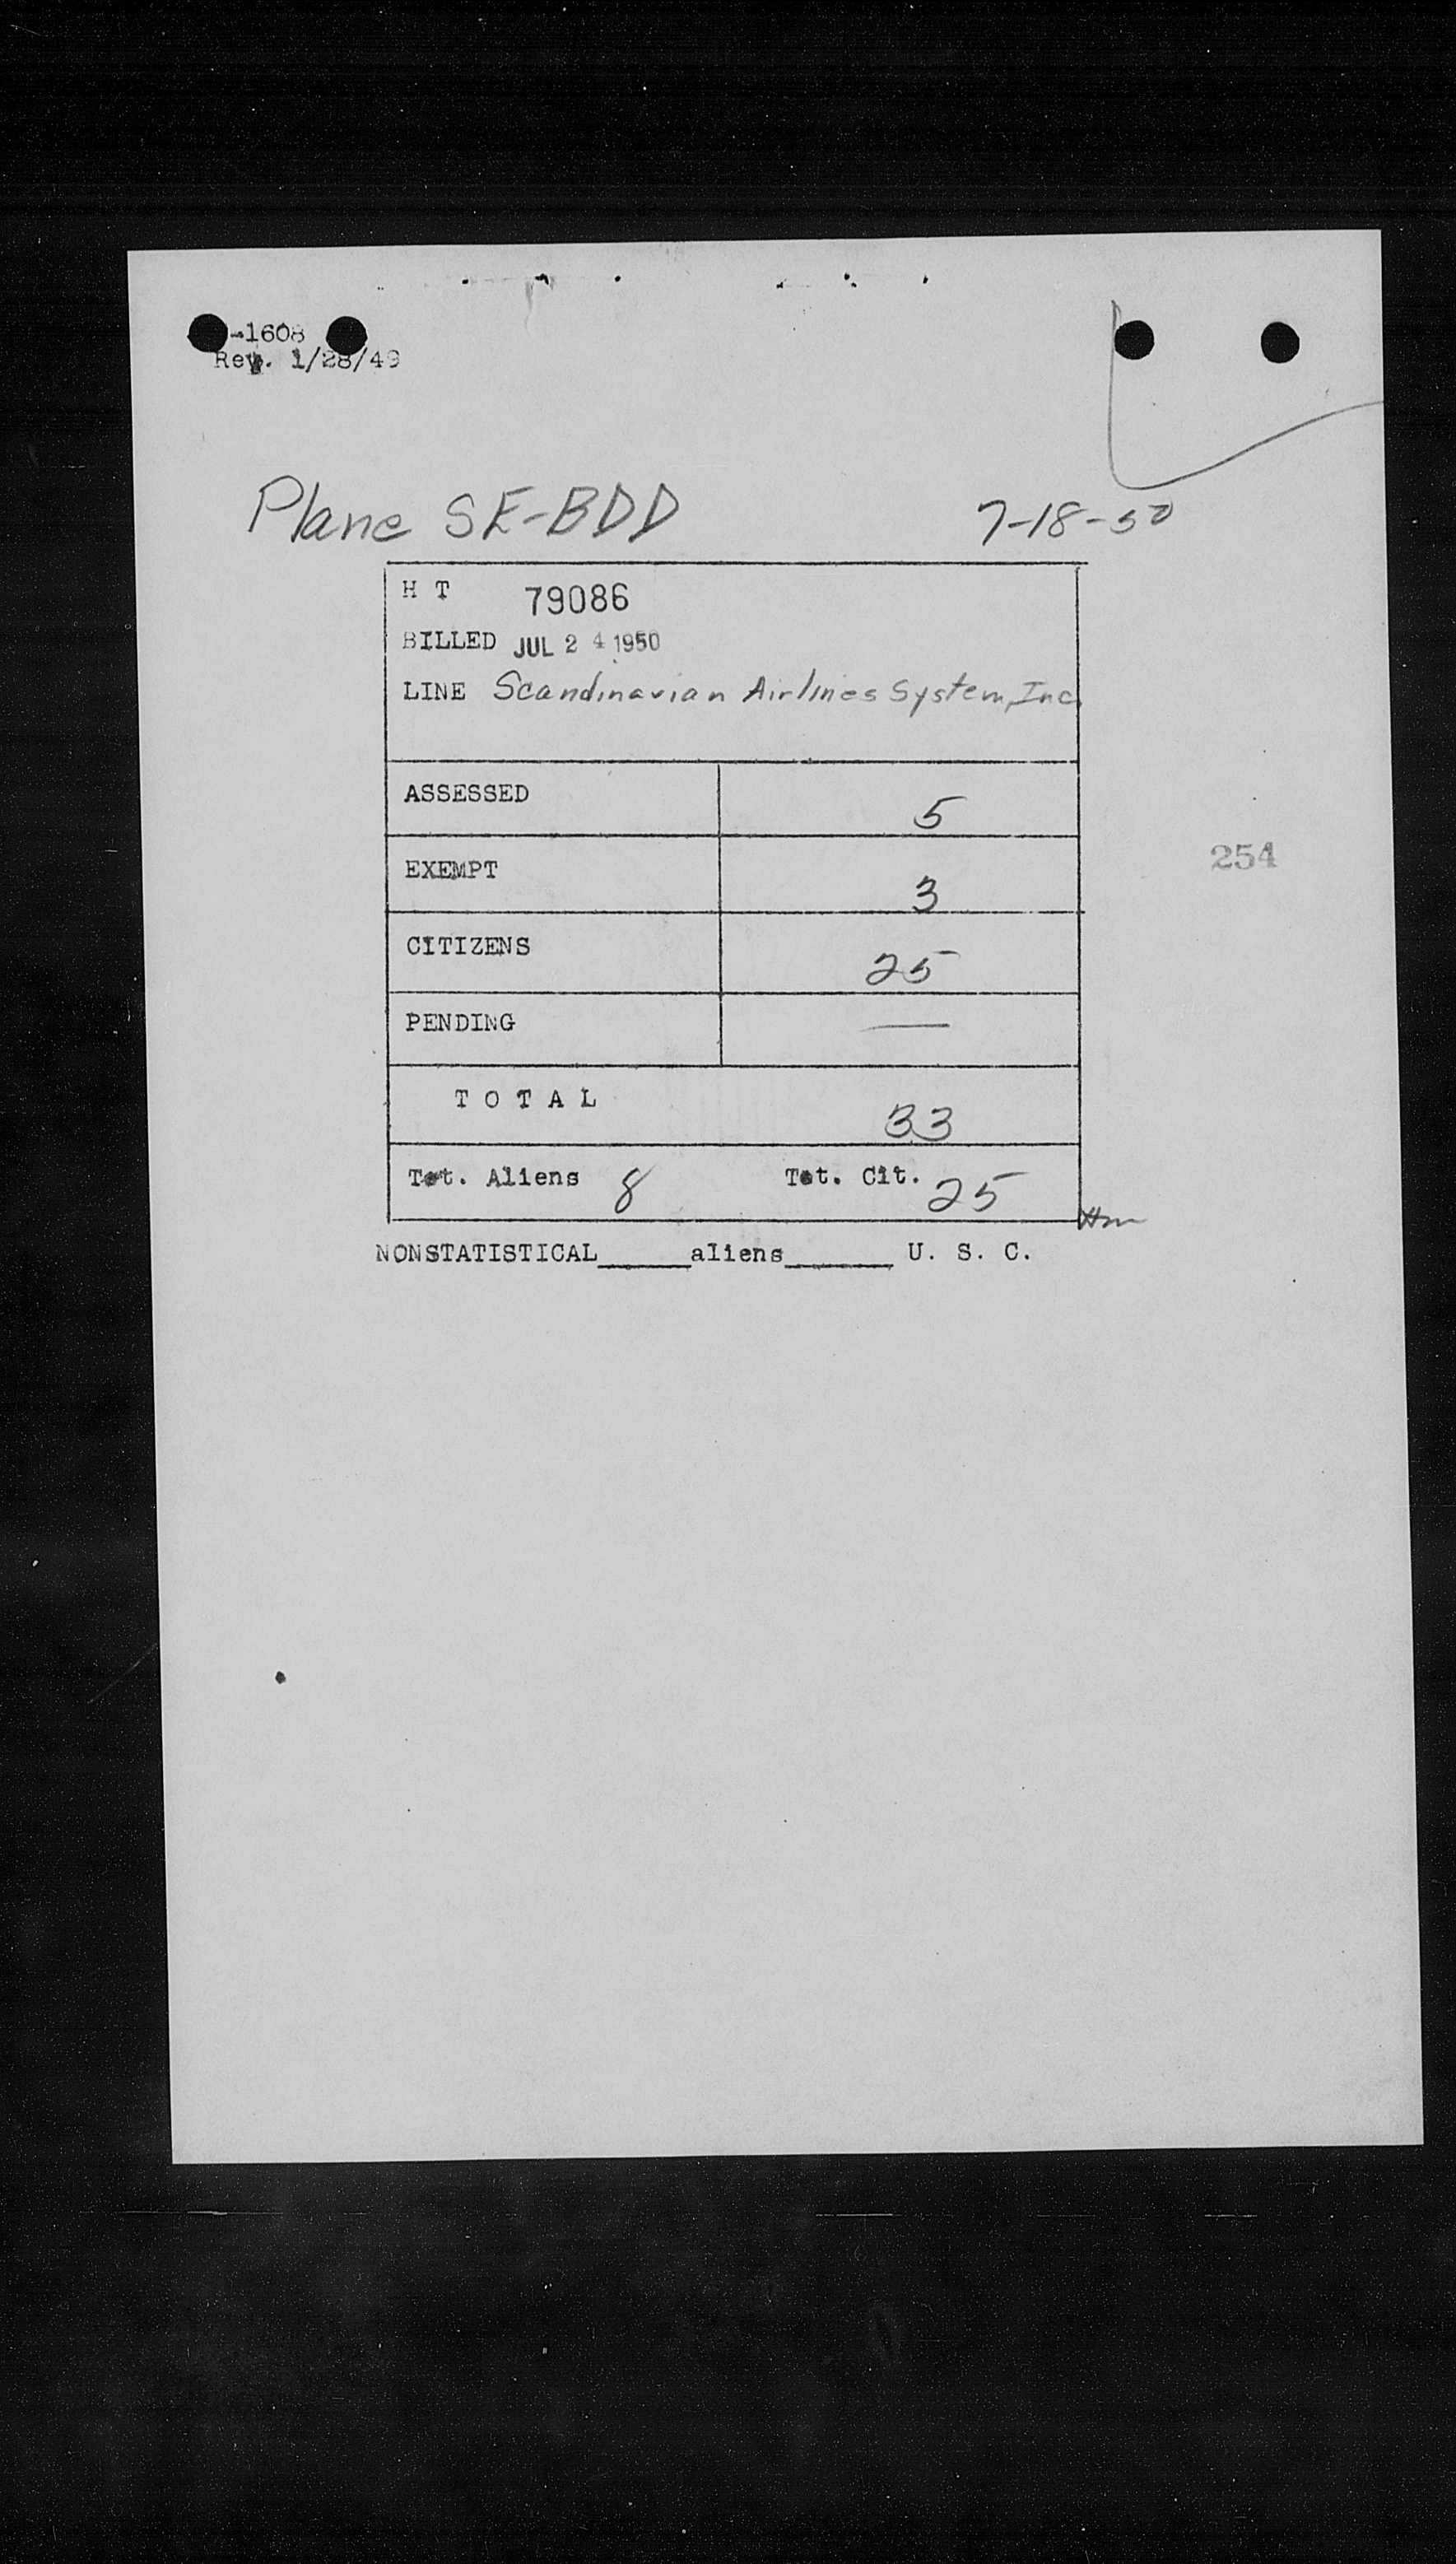 -1608
Rev. 1/28/49
Plane SE-BDD 7-18-50
H T 79086
BILLED JUL 24 1950
LINE Scandinavian Airlines System, Inc.
ASSESSED 5
EXEMPT 3
254
CITIZENS 25
PENDING —
T O T A L 33
Tot. Aliens 8 Tot. Cit. 25
NONSTATISTICAL_____aliens______ U. S. C.